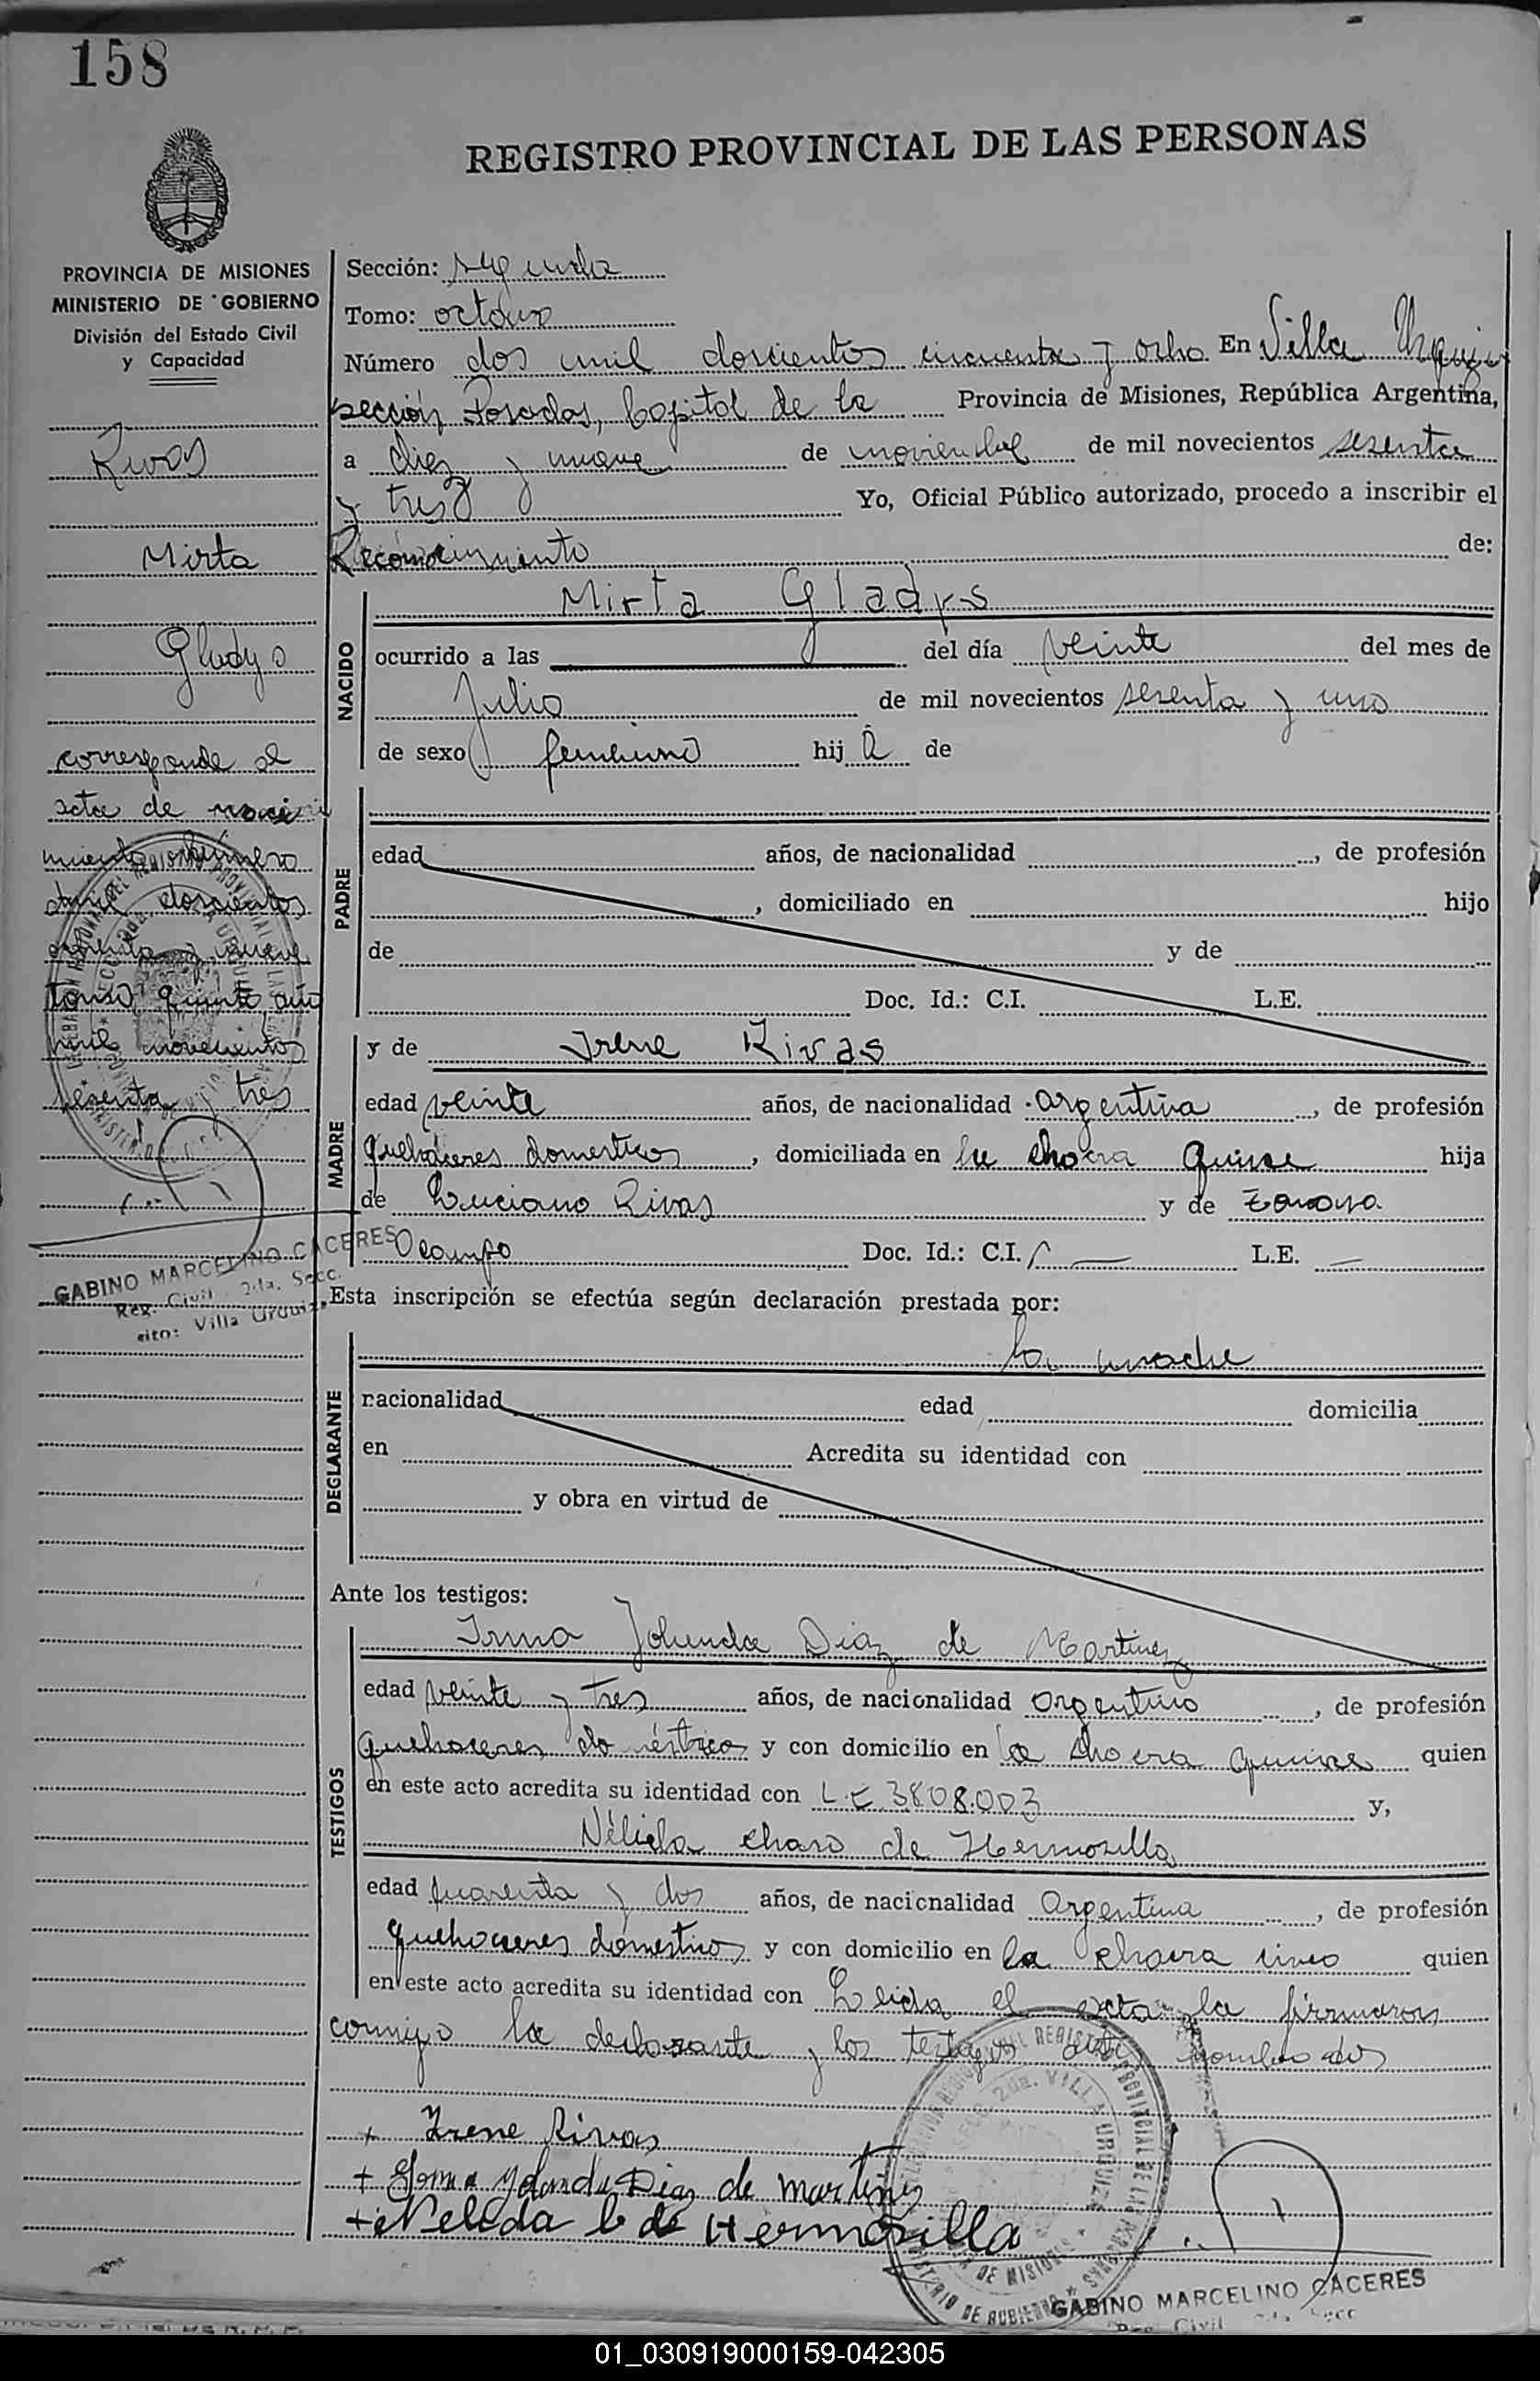 158
REGISTRO PROVINCIAL DE LAS PERSONAS
PROVINCIA DE MISIONES
MINISTERIO DE GOBIERNO
División del Estado Civil
y Capacidad
Rivas
Mirta
Gladys
corresponde al
acta de naci
miento número
doscientos
y nueve
tomo quinto, año
mil novecientos
sesenta y tres
GABINO MARCELINO CACERES
Reg. Civil 2da. Secc.
sito: Villa Urquiza
Sección: segunda
Tomo: octavo
Número dos mil doscientos cincuenta y ocho En Villa Urquiza
sección Posadas, Capital de la Provincia de Misiones, República Argentina,
a diez y nueve de noviembre de mil novecientos sesenta
y tres Yo, Oficial Público autorizado, procedo a inscribir el
Reconocimiento de:
NACIDO
Mirta Gladys
ocurrido a las del día veinte del mes de
Julio de mil novecientos sesenta y uno
de sexo femenino hija de
PADRE
edad años, de nacionalidad , de profesión
, domiciliado en hijo
de y de
Doc. Id.: C.I. L.E.
MADRE
y de Irene Rivas
edad veinte años, de nacionalidad argentina , de profesión
quehaceres domesticos , domiciliada en la chacra quince hija
de Luciano Rivas y de
Ocampo Doc. Id.: C.I. — L.E. —
Esta inscripción se efectúa según declaración prestada por:
DECLARANTE
La madre
nacionalidad edad domicilia
en Acredita su identidad con
y obra en virtud de
Ante los testigos:
TESTIGOS
Irma Yolanda Diaz de Martinez
edad veinte y tres años, de nacionalidad argentina , de profesión
quehaceres domésticos y con domicilio en la chacra quince quien
en este acto acredita su identidad con L.E 3.808.003 y,
Nélida Charo de Hermosilla
edad cuarenta y dos años, de nacionalidad Argentina , de profesión
quehaceres domesticos y con domicilio en la chacra cinco quien
en este acto acredita su identidad con Leida el acta la firmaron
conmigo la declarante y los testigos nombrados
+ Irene Rivas
+ Irma Yolanda Diaz de Martinez
+ Nelida C de Hermosilla
GABINO MARCELINO CACERES
Reg. Civil 2da. Secc
01_030919000159-042305